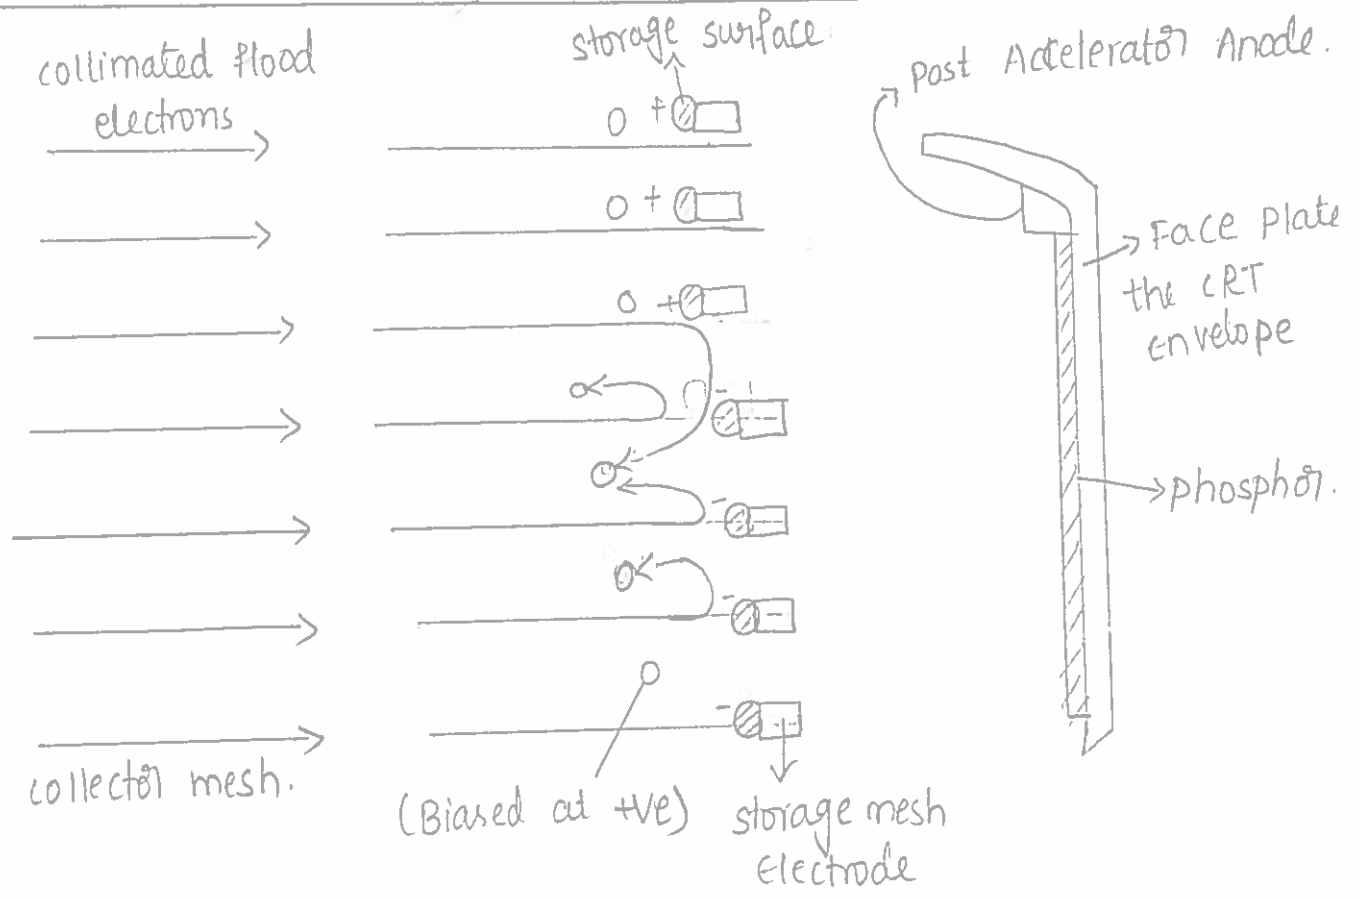 collimated flood
electrons
storage surface
Post Accelerator Anode.
0 +
0 +
0 +
Face Plate
the CRT
envelope
phosphor.
collector mesh.
(Biased at +ve)
storage mesh
Electrode